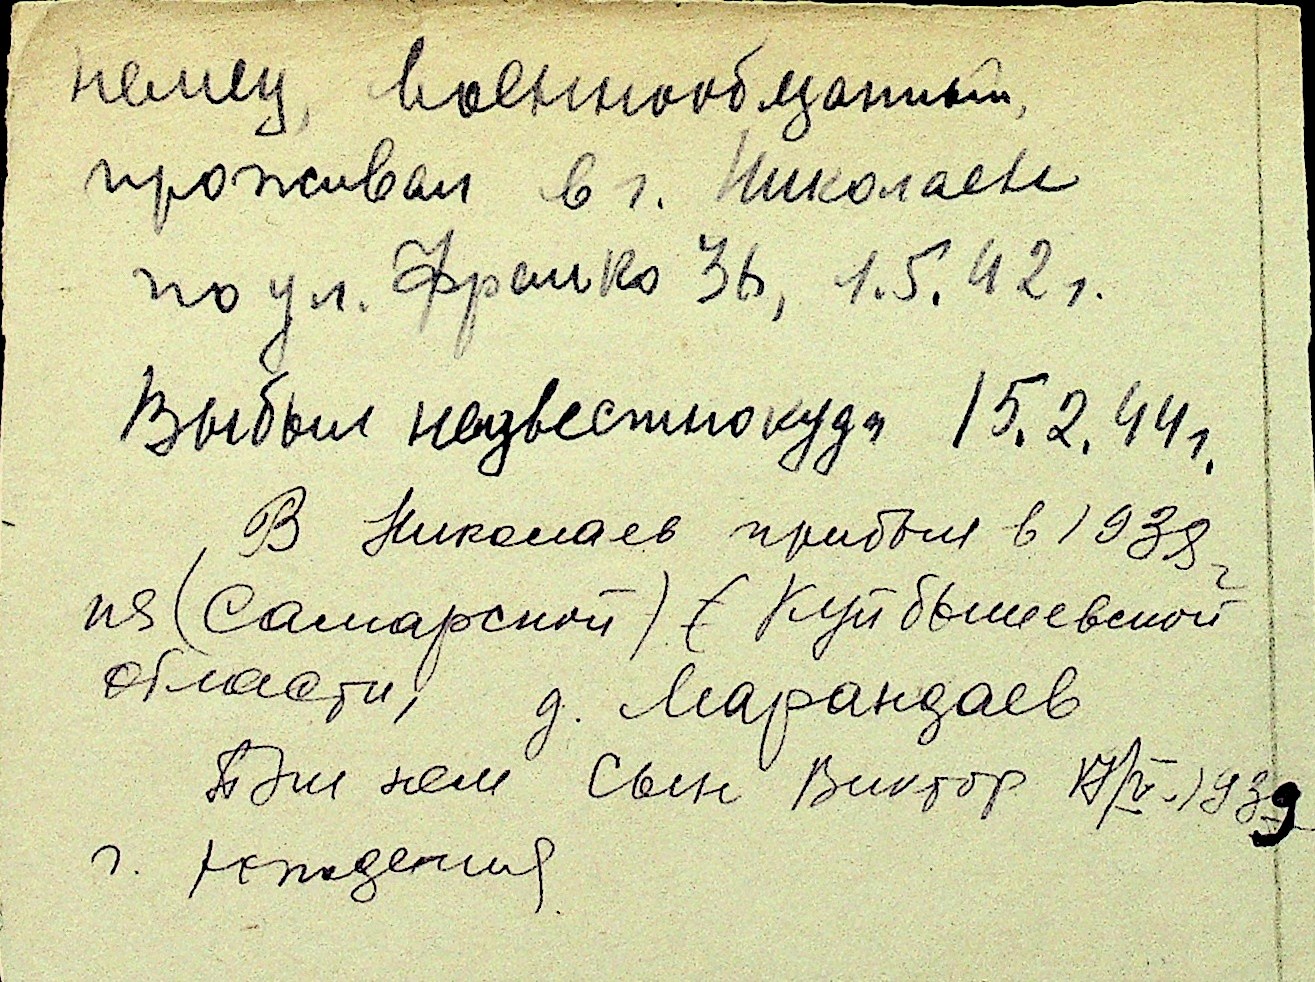 немец, военнообязанный,
проживал в г. Николаеве
по ул. Франко 36, 1.5.42 г.
Выбыл неизвестнокуда 15.2.44 г.
В Николаев прибыл в 1939 г
из (Самарской) (Куйбышевской
области, д. Марандаев
При нем сын Виктор 1939
г. рождения